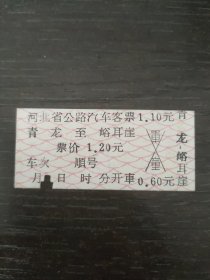 河北省公路汽车客票1.10元
青龙至峪耳崖
票价 1.20元
车次 順号
月 日 时 分开車0.60元
童 童
青龙-峪耳崖